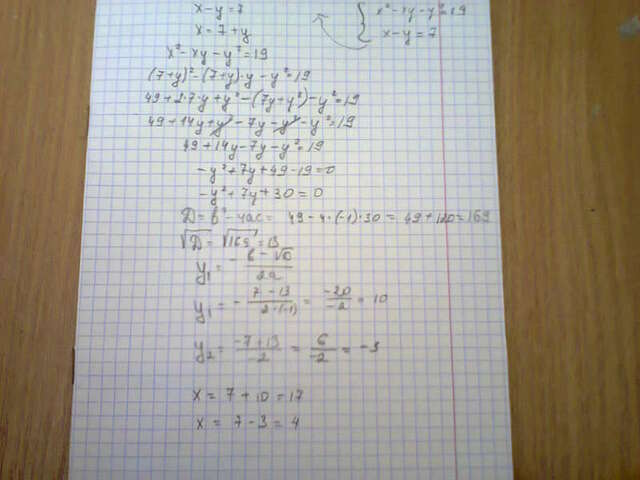 x² - xy - y² = 19
x - y = 7
x - y = 7
x = 7 + y
x² - xy - y² = 19
(7+y)² - (7+y)·y - y² = 19
49 + 2·7·y + y² - (7y + y²) - y² = 19
49 + 14y + y² - 7y - y² - y² = 19
49 + 14y - 7y - y² = 19
-y² + 7y + 49 - 19 = 0
-y² + 7y + 30 = 0
D = b² - 4ac = 49 - 4·(-1)·30 = 49 + 120 = 169
√D = √169 = 13
y₁ = (-b - √D) / 2a
y₁ = (-7 - 13) / 2·(-1) = -20 / -2 = 10
y₂ = (-7 + 13) / -2 = 6 / -2 = -3
x = 7 + 10 = 17
x = 7 - 3 = 4